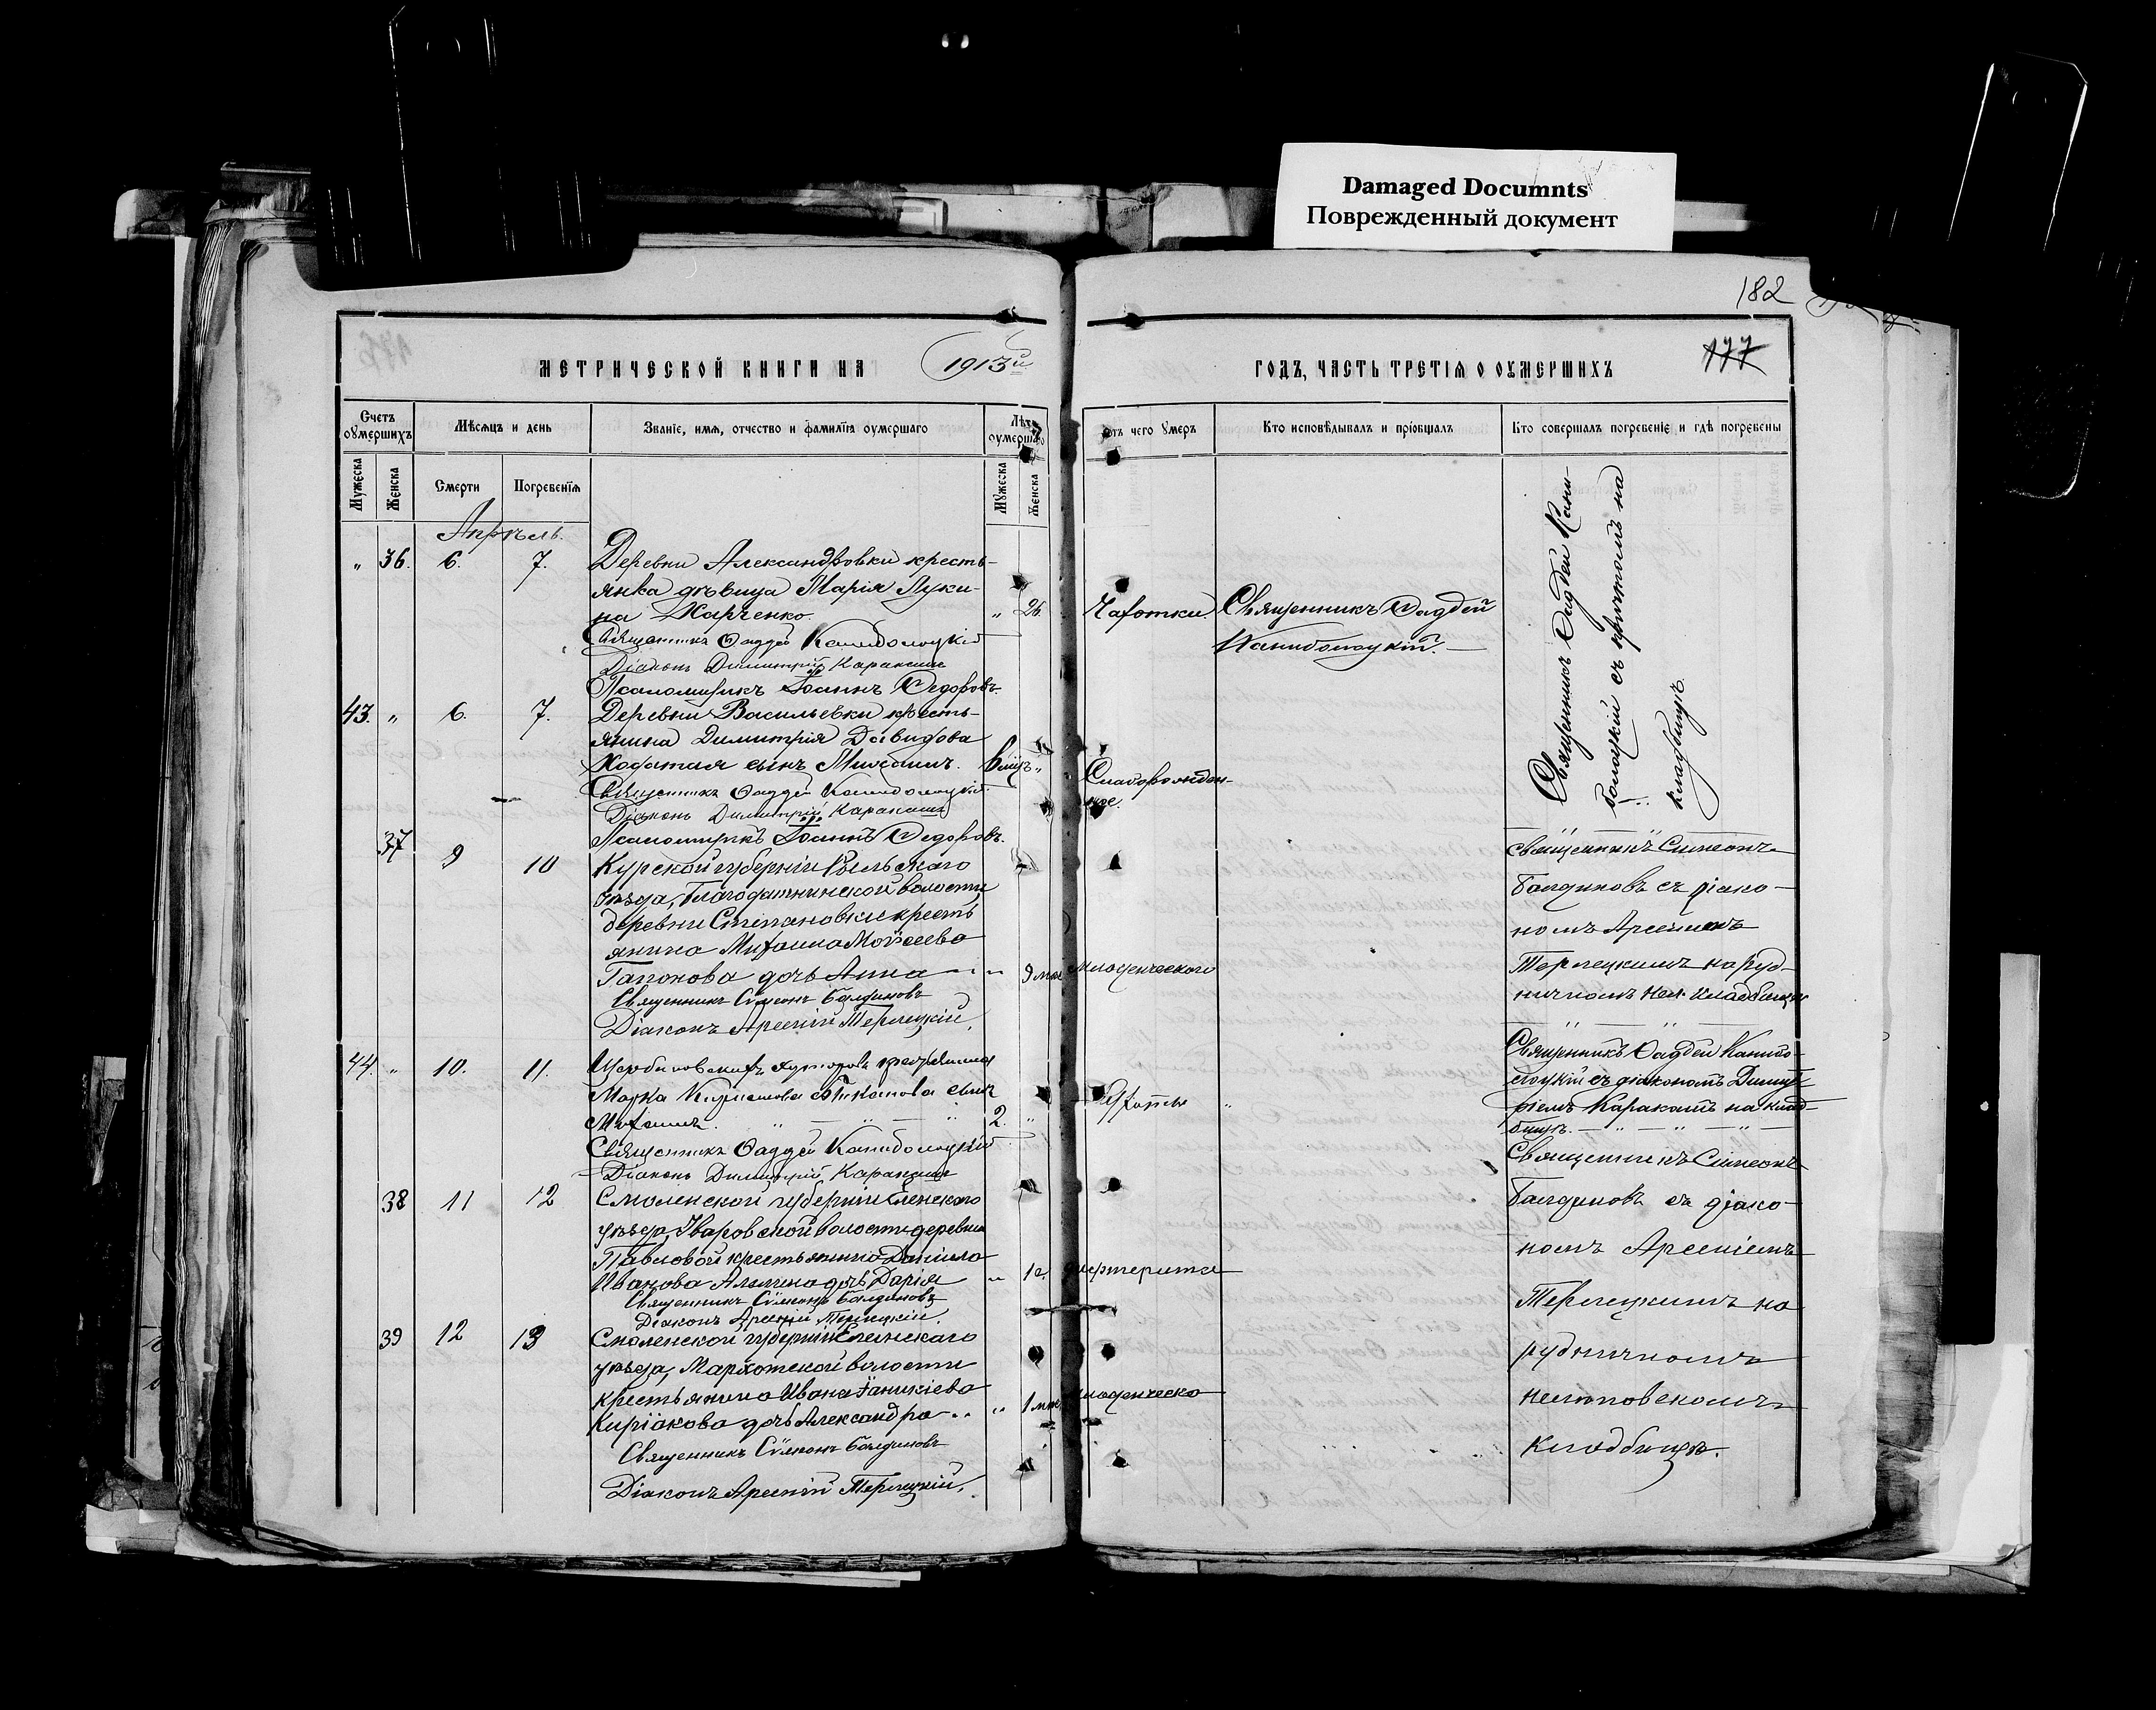 Damaged Documnts
Поврежденный документ
182
177
МЕТРИЧЕСКОЙ КНИГИ НА 1913й
ГОДЪ, ЧАСТЬ ТРЕТІЯ О ОУМЕРШИХЪ
Счетъ оумершихъ
Мѣсяцъ и день
Званіе, имя, отчество и фамилія оумершаго
Лѣта оумершаго
Мужеска
Женска
Смерти
Погребенія
Мужеска
Женска
чего умеръ
Кто исповѣдывалъ и пріобщалъ
Кто совершалъ погребеніе и гдѣ погребены
Апрѣль.
" 36. 6. 7. Деревни Александровки кресть-
янка дѣвица Марія Луки-
на Харченко. " 26
Священникъ Фаддей Канибо
Діаконъ Димитрій Каракаш
Псаломщикъ Іоаннъ Ѳедоровъ.
Чахотки. Священникъ Фаддей
Священникъ Фаддей Кани-
съ причтомъ на
кладбищѣ.
43. " 6. 7. Деревни Васильевки кресть-
янина Димитрія Давидова
сынъ Михаилъ. 6 мѣс "
Священникъ Фаддей
Діаконъ Димитрій Каракаш
Псаломщикъ Іоаннъ Ѳедоровъ.
Слаборожден-
ное.
37 9 10 Курской губерніи Рыльскаго
уѣзда, Благодатнинской волости
деревни Степановки кресть
янина Михаила Моисеева
Гапонова дочь Анна " 9 мѣс
Священникъ Сѵмеонъ Балдиновъ
Діаконъ Арсеній Терлецкій.
Младенческаго
Священникъ Симеонъ
Балдиновъ съ діако-
номъ Арсеніемъ
Терлецкимъ на руд-
ничномъ кладбищѣ
44. " 10. 11. Щербиновскихъ хуторовъ крестьянина
Марка сынъ
Михаилъ. 2. "
Священникъ Фаддей
Діаконъ Димитрій Каракаш
"
Священникъ Фаддей Канибо-
лоцкій съ діакономъ Димит-
ріемъ на клад-
бищѣ.
38 11 12 Смоленской губерніи Ельнскаго
уѣзда, Уваровской волости деревни
Павловой крестьянина Даніила
Иванова дочь Дарія " 1 г.
Священникъ Сѵмеонъ Балдиновъ
Діаконъ Арсеній Терлецкій.
Священникъ Симеонъ
Балдиновъ съ діако-
номъ Арсеніемъ
Терлецкимъ на
рудничномъ
кладбищѣ.
39 12 13 Смоленской губерніи Ельнинскаго
уѣзда, волости
крестьянина Ивана
Киріакова дочь Александра " 1 мѣс
Священникъ Сѵмеонъ Балдиновъ
Діаконъ Арсеній Терлецкій.